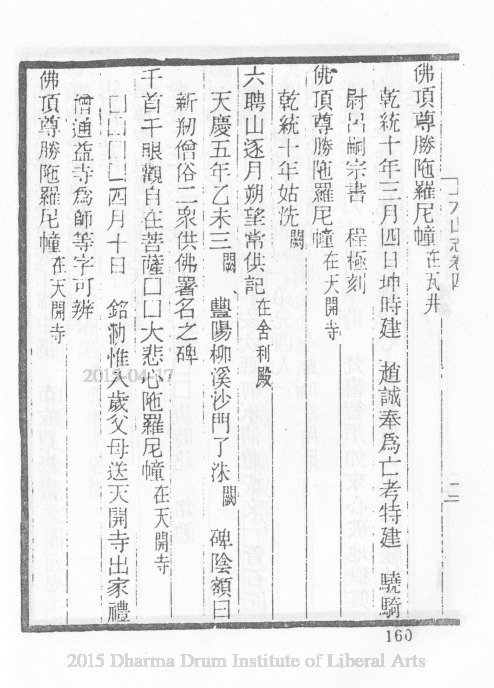 佛頂尊勝陁羅尼幢在瓦井
乾統十年三月四日坤時建　趙誠奉爲亡考特建　驍騎
尉呂嗣宗書　程極刻
佛頂尊勝陁羅尼幢在天開寺
乾統十年姑洗闕
六聘山逐月朔望常供記在舍利殿
天慶五年乙未三闕　豐陽柳溪沙門了洙闕　碑陰額曰
新剏僧俗二衆供佛署名之碑
千首千眼觀自在菩薩囗囗大悲心陁羅尼幢在天開寺
囗囗囗囗四月十日　銘泐惟入歲父母送天開寺出家禮
僧通益寺爲師等字可辨
佛頂尊勝陁羅尼幢在天開寺
山志卷四
二
160
2015 Dharma Drum Institute of Liberal Arts